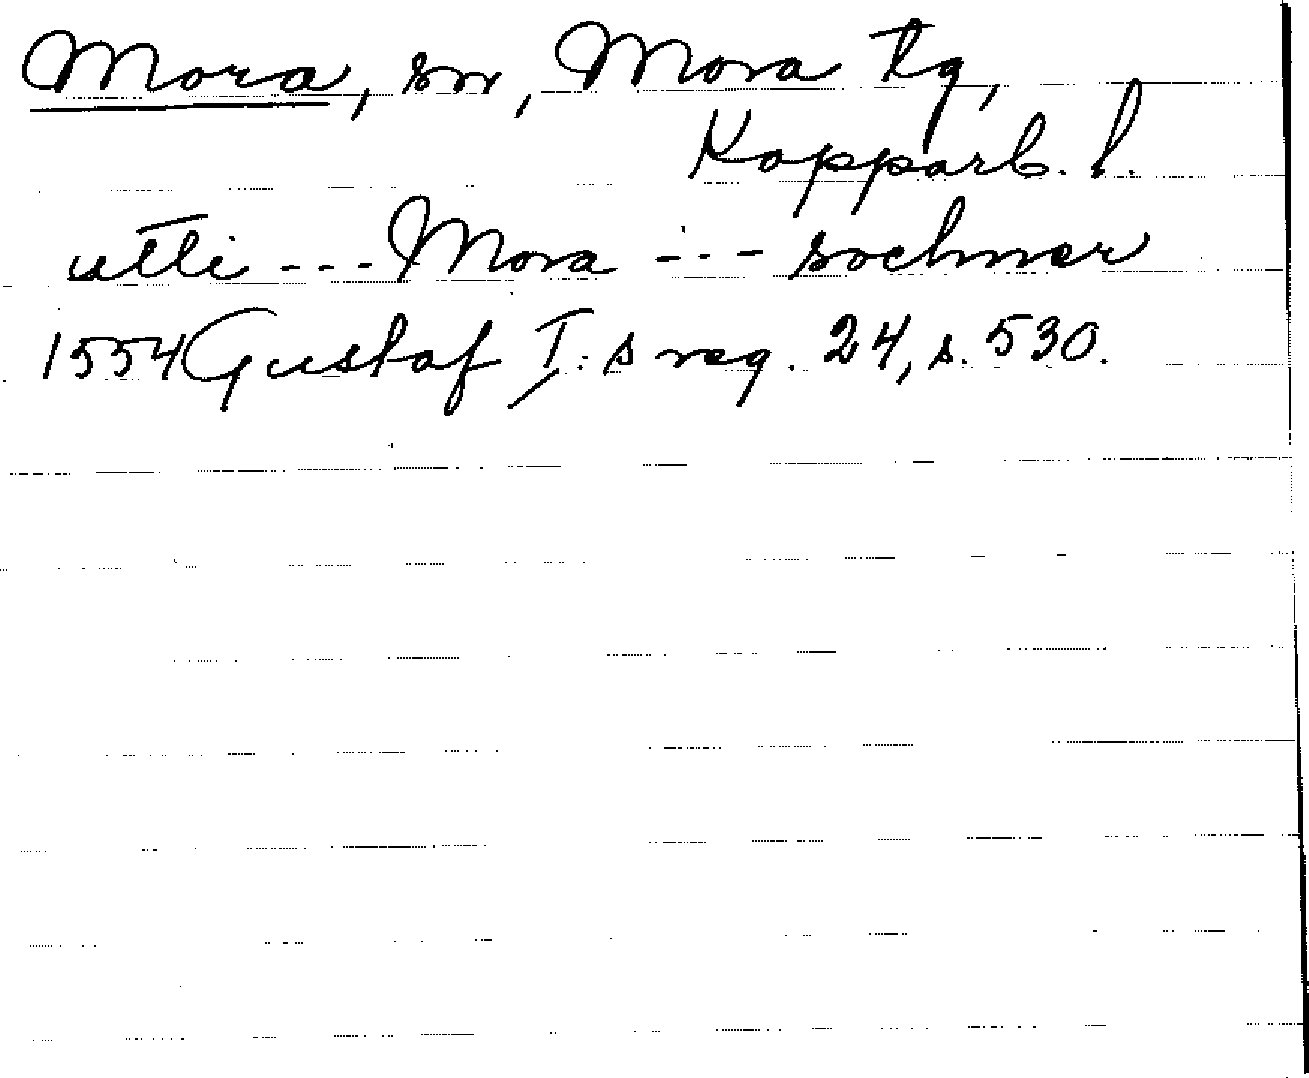 Mora, sn, Mora tg,
Kopparb. l.
utti --- Mora --- sochner
1554 Gustaf I:s reg. 24, s. 530.